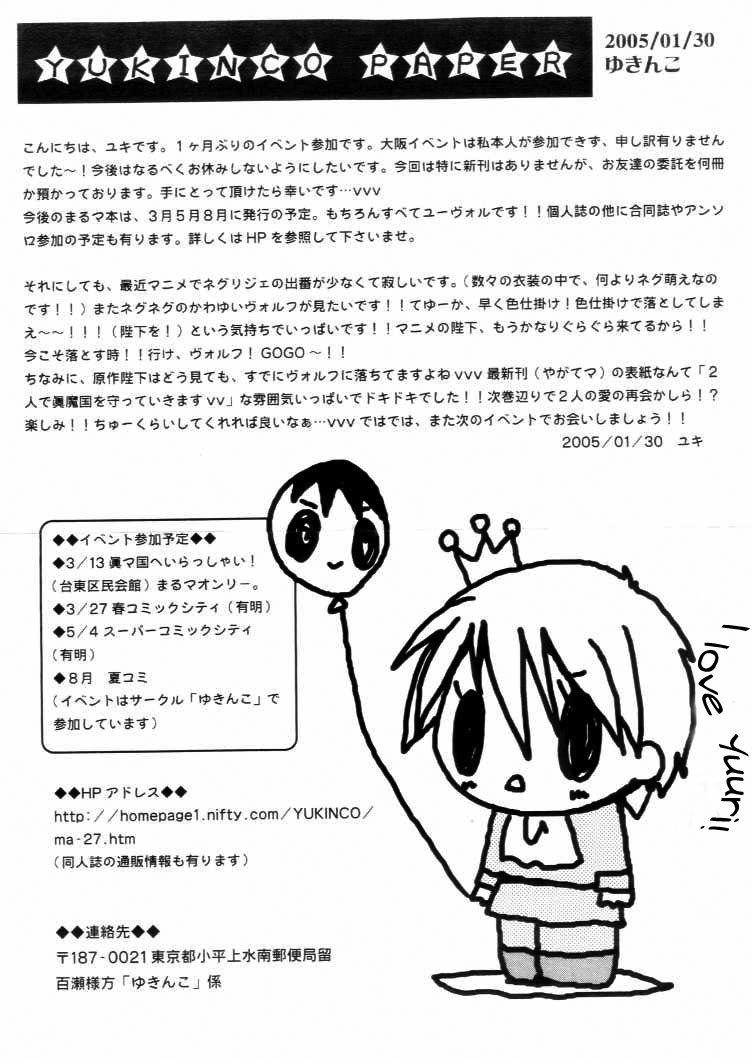 YUKINCO PAPER
2005/01/30
ゆきんこ
こんにちは、ユキです。1ヶ月ぶりのイベント参加です。大阪イベントは私本人が参加できず、申し訳有りません
でした〜！今後はなるべくお休みしないようにしたいです。今回は特に新刊はありませんが、お友達の委託を何冊
か預かっております。手にとって頂けたら幸いです…vvv
今後のまるマ本は、3月5月8月に発行の予定。もちろんすべてユーヴォルです！！個人誌の他に合同誌やアンソ
ロ参加の予定も有ります。詳しくはHPを参照して下さいませ。
それにしても、最近マニメでネグリジェの出番が少なくて寂しいです。（数々の衣装の中で、何よりネグ萌えなの
です！！）またネグネグのかわゆいヴォルフが見たいです！！てゆーか、早く色仕掛け！色仕掛けで落としてしま
え〜〜！！！（陛下を！）という気持ちでいっぱいです！！マニメの陛下、もうかなりぐらぐら来てるから！！
今こそ落とす時！！行け、ヴォルフ！GOGO〜！！
ちなみに、原作陛下はどう見ても、すでにヴォルフに落ちてますよねvvv 最新刊（やがてマ）の表紙なんて「2
人で眞魔国を守っていきますvv」な雰囲気いっぱいでドキドキでした！！次巻辺りで2人の愛の再会かしら！？
楽しみ！！ちゅーくらいしてくれれば良いなぁ…vvv ではでは、また次のイベントでお会いしましょう！！
2005/01/30　ユキ
◆◆イベント参加予定◆◆
◆3/13 眞マ国へいらっしゃい！
（台東区民会館）まるマオンリー。
◆3/27 春コミックシティ（有明）
◆5/4 スーパーコミックシティ
（有明）
◆8月　夏コミ
（イベントはサークル「ゆきんこ」で
参加しています）
I love Yuuri!!
◆◆HPアドレス◆◆
http://homepage1.nifty.com/YUKINCO/
ma-27.htm
（同人誌の通販情報も有ります）
◆◆連絡先◆◆
〒187-0021 東京都小平上水南郵便局留
百瀬様方「ゆきんこ」係